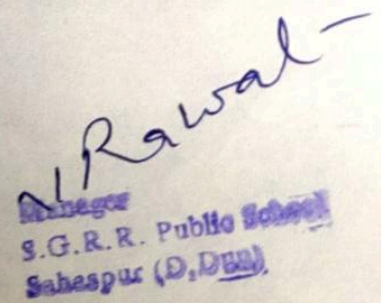 N Rawat
Manager
S.G.R.R. Public School
Sahaspur (D,Dun)